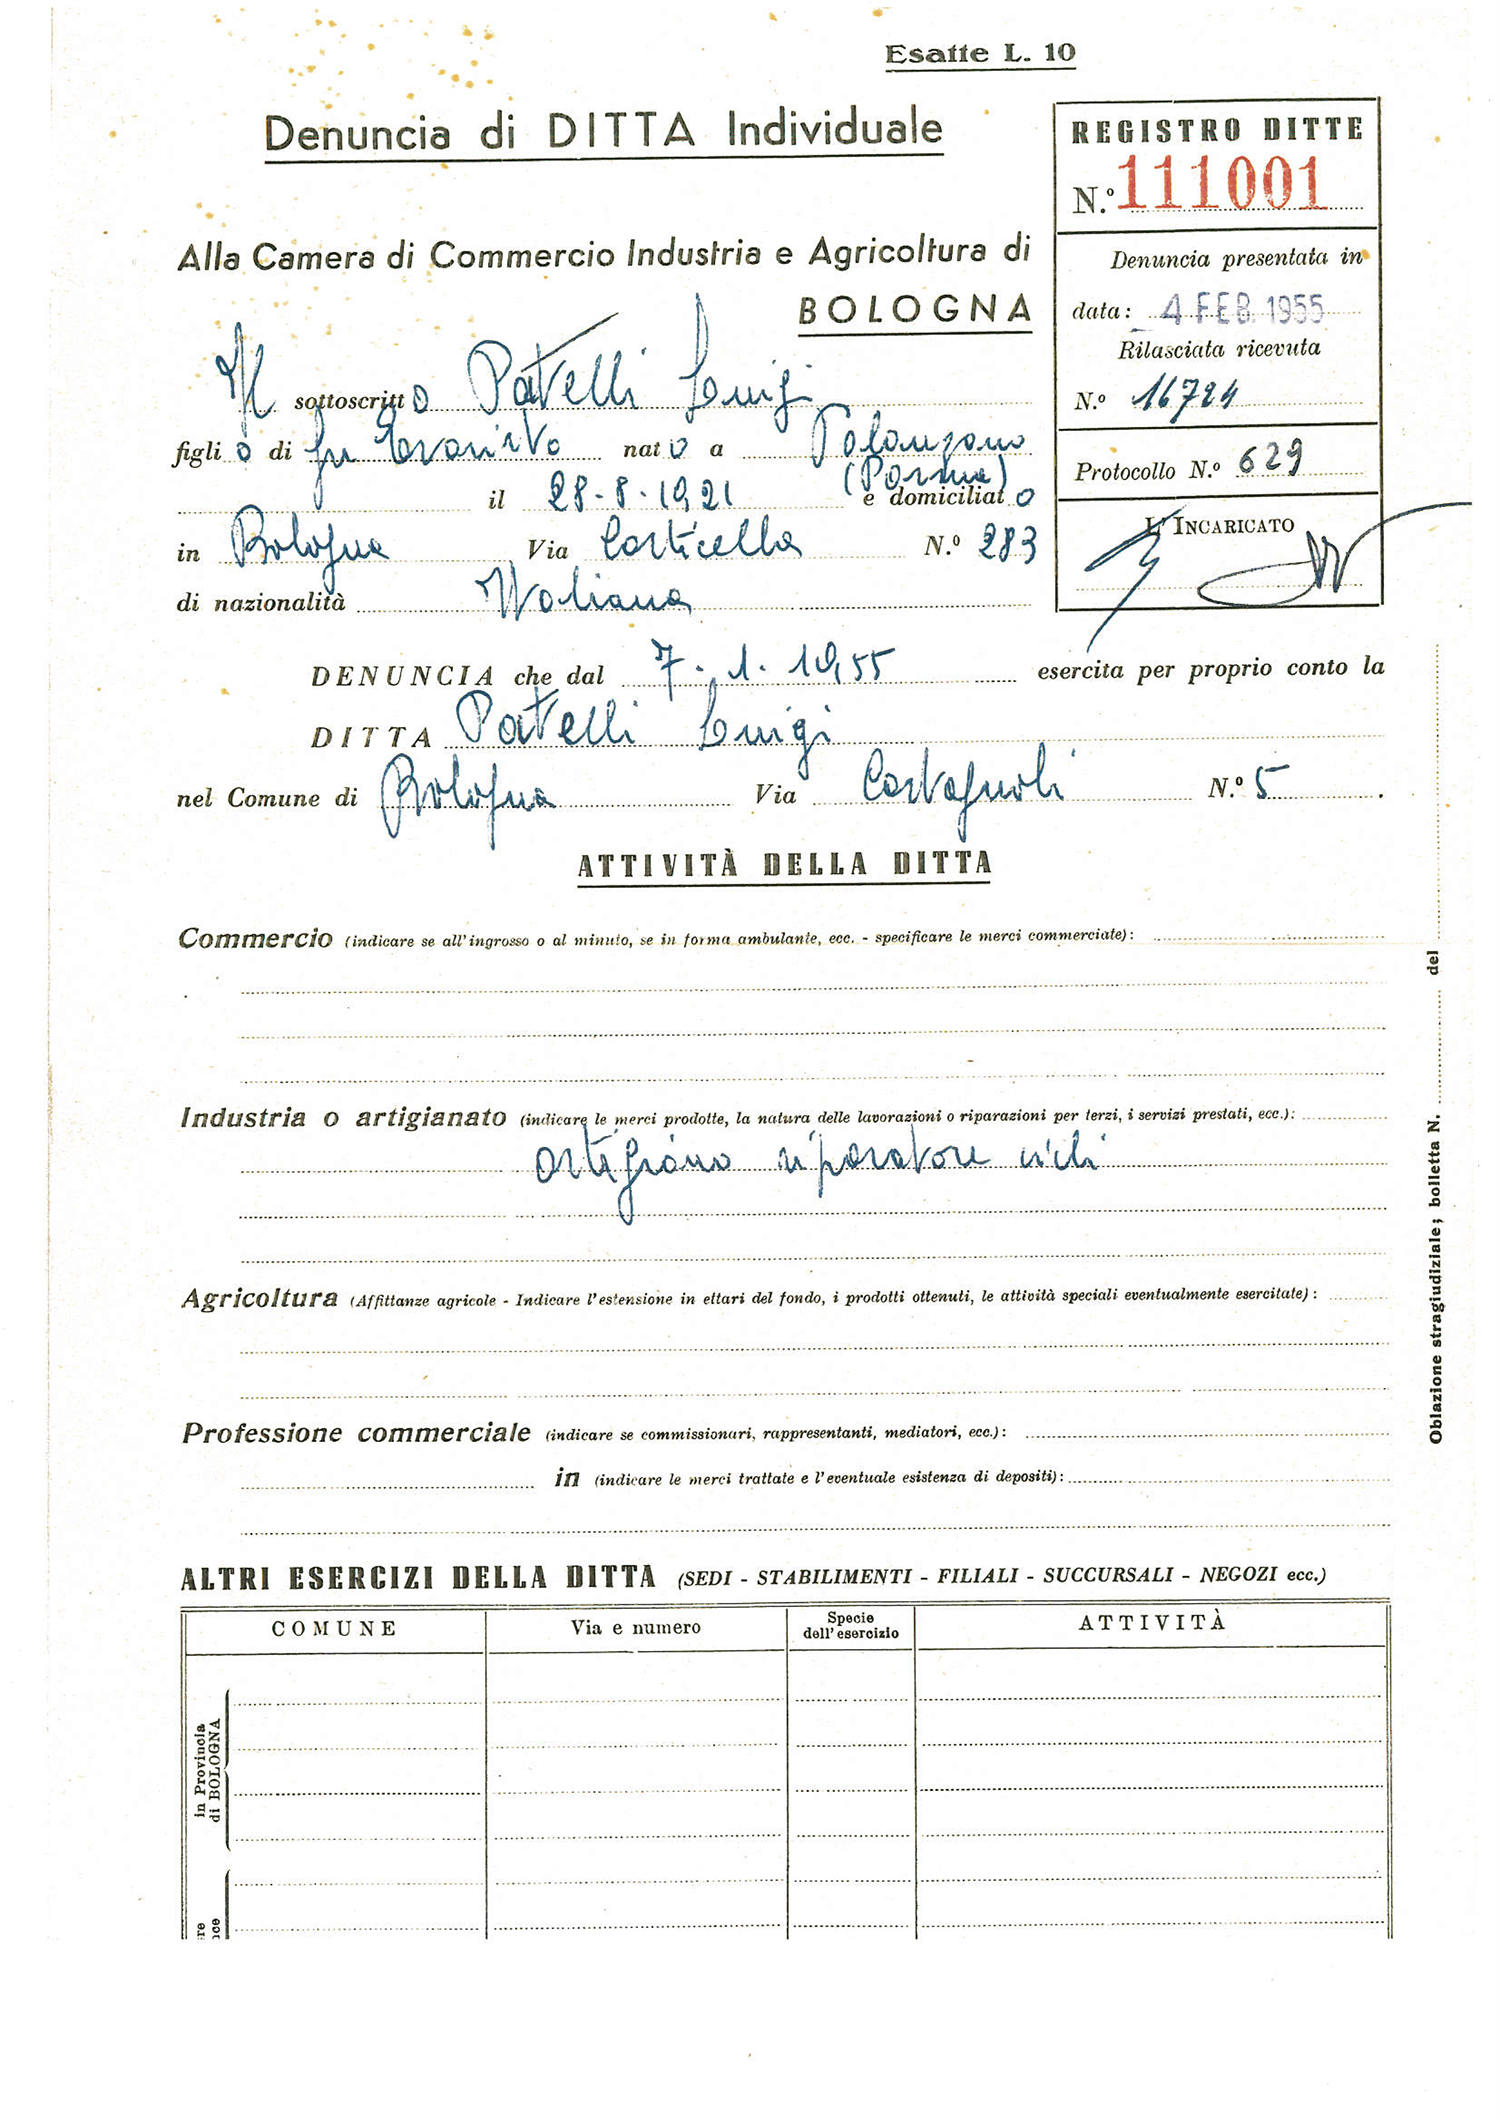 Esatte L. 10
Denuncia di DITTA Individuale
REGISTRO DITTE
N.º 111001
Alla Camera di Commercio Industria e Agricoltura di
BOLOGNA
Denuncia presentata in
data: 4 FEB. 1955
Rilasciata ricevuta
N.º 16724
Protocollo N.º 629
L'INCARICATO
Il sottoscritto Patelli Luigi
figlio di fu Evaristo nato a Palanzano
(Parma)
il 28-8-1921 e domiciliato
in Bologna Via Corticella N.º 283
di nazionalità Italiana
DENUNCIA che dal 7.1.1955 esercita per proprio conto la
DITTA Patelli Luigi
nel Comune di Bologna Via Castagnoli N.º 5 .
ATTIVITÀ DELLA DITTA
Commercio (indicare se all'ingrosso o al minuto, se in forma ambulante, ecc. - specificare le merci commerciate):
Industria o artigianato (indicare le merci prodotte, la natura delle lavorazioni o riparazioni per terzi, i servizi prestati, ecc.):
artigiano riparatore cicli
Agricoltura (Affittanze agricole - Indicare l'estensione in ettari del fondo, i prodotti ottenuti, le attività speciali eventualmente esercitate):
Professione commerciale (indicare se commissionari, rappresentanti, mediatori, ecc.):
in (indicare le merci trattate e l'eventuale esistenza di depositi):
ALTRI ESERCIZI DELLA DITTA (SEDI - STABILIMENTI - FILIALI - SUCCURSALI - NEGOZI ecc.)
COMUNE Via e numero Specie dell'esercizio ATTIVITÀ
in Provincia
di BOLOGNA
Oblazione stragiudiziale; bolletta N. del